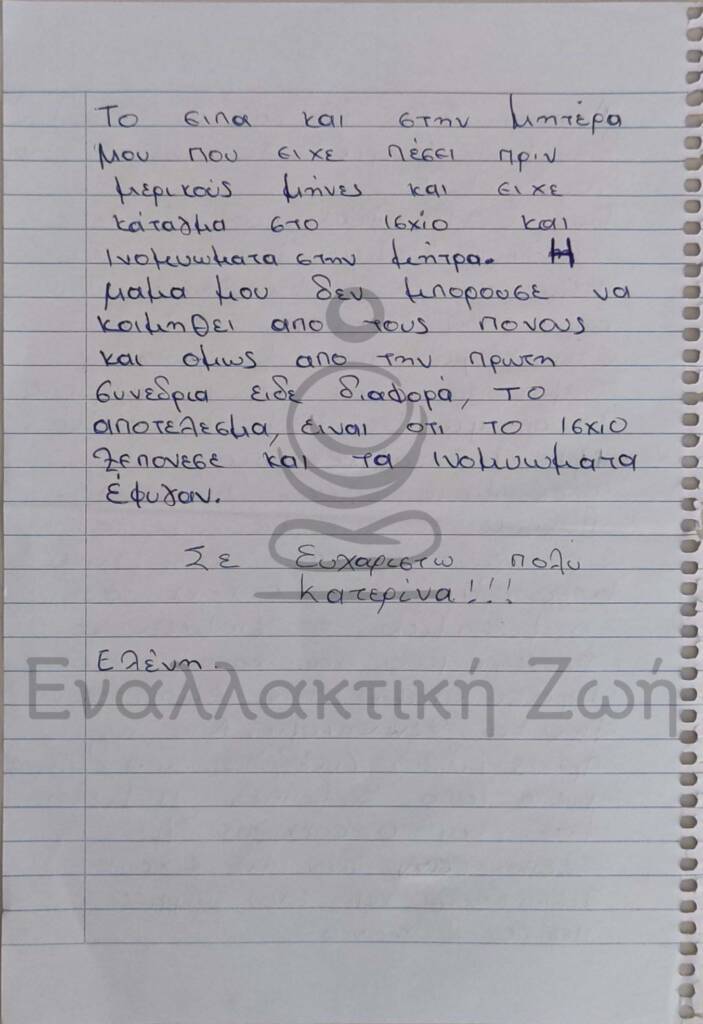 Το ειπα και στην μητέρα
μου που ειχε πέσει πριν
μερικούς μήνες και ειχε
κάταγμα στο ισχίο και
ινομυώματα στην μήτρα. Η
μαμα μου δεν μπορουσε να
κοιμηθει απο τους πονους
και ομως απο την πρωτη
συνεδρια ειδε διαφορά, το
αποτέλεσμα, ειναι οτι το ισχιο
ξεπονεσε και τα ινομυωματα
έφυγαν.
Σε Ευχαριστω πολύ
Κατερίνα!!!
Ελένη.
Εναλλακτική Ζωή